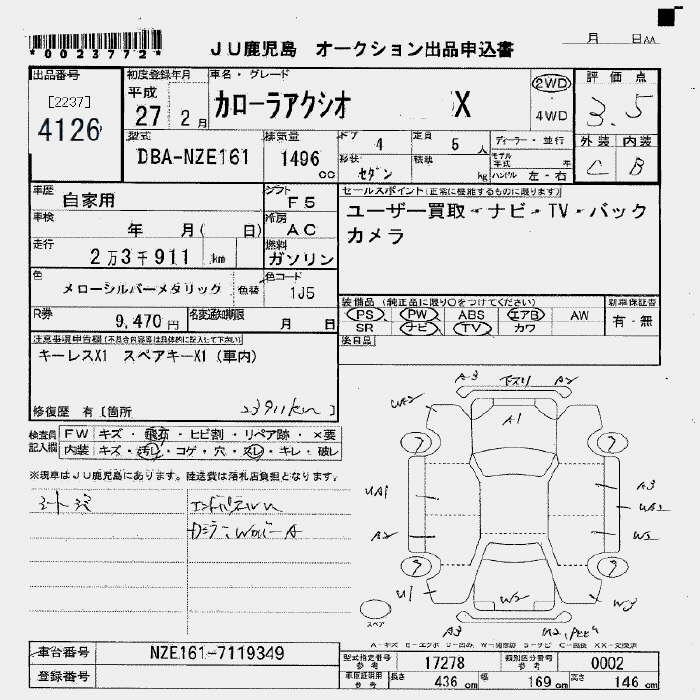 *0023772*
月 日AA
JU鹿児島 オークション出品申込書
出品番号 初度登録年月 車名・グレード 評価点
[2237] 平成 カローラアクシオ X 2WD 3.5
4126 27 2月 4WD
型式 排気量 ドア 4 定員 5人 ディーラー・並行 外装 内装
DBA-NZE161 1496cc 形状 セダン 積載 kg モデル年式 年 ハンドル 左・右 C B
車歴 自家用 シフト F5 セールスポイント(正常に機能するものに限ります)
車検 年 月( 日) 冷房 AC ユーザー買取・ナビ・TV・バック
走行 2万3千911km 燃料 ガソリン カメラ
色 メローシルバーメタリック 色替 色コード 1J5
装備品(純正品に限り○をつけてください) 新車保証書
R券 9,470円 名変通知期限 月 日 PS PW ABS エアB AW 有・無
SR ナビ TV カワ
注意事項申告欄(不具合内容等は具体的に記入して下さい) 後日品
キーレスX1 スペアキーX1(車内)
修復歴 有[箇所 23911km]
検査員記入欄 FW キズ・飛石・ヒビ割・リペア跡・×要
内装 キズ・汚レ・コゲ・穴・スレ・キレ・破レ
※現車はJU鹿児島にあります。陸送費は落札店負担となります。
A3 下スリ A2
UA2 A1
UA1 A3
UA2
A2 W2
U1 W2 W3
A3 U2
スペア
A-キズ E-エクボ U-凹み W-補修跡 S-サビ C-腐食 XX-交換済
車台番号 NZE161-7119349 型式指定番号 参考 17278 類別区分番号 参考 0002
登録番号 車庫証明用 参考 長さ 436cm 幅 169cm 高さ 146cm